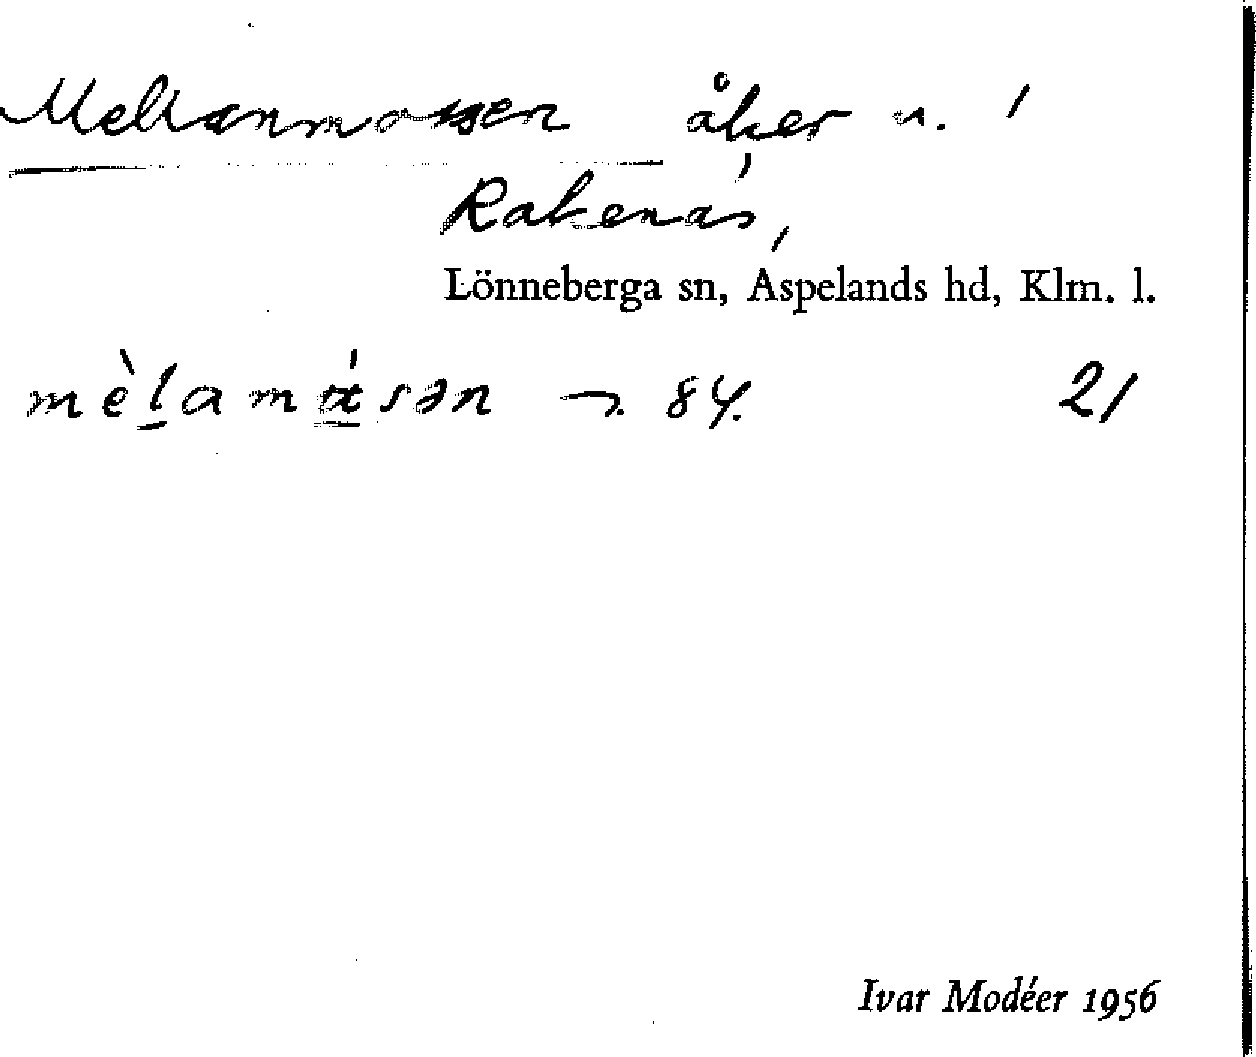 Mellanmossen åker u.
Rakenäs,
Lönneberga sn, Aspelands hd, Klm. l.
mèlamɑ́sən ¬. 84. 21
Ivar Modéer 1956